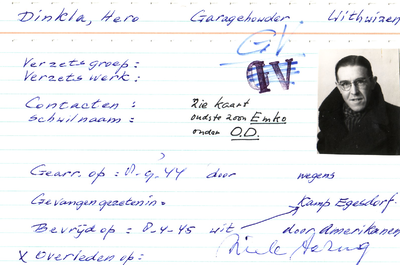 Dinkla, Hero Garagehouder Uithuizen
GV.
OV
Verzetsgroep:
Verzetswerk:
Contacten: Zie kaart
Schuilnaam: oudste zoon Emko
onder O.D.
Gearr. op: 11-9-44 door wegens
Gevangengezeten in: Kamp Egesdorf.
Bevrijd op: 8-4-45 uit door Amerikanen
X Overleden op: